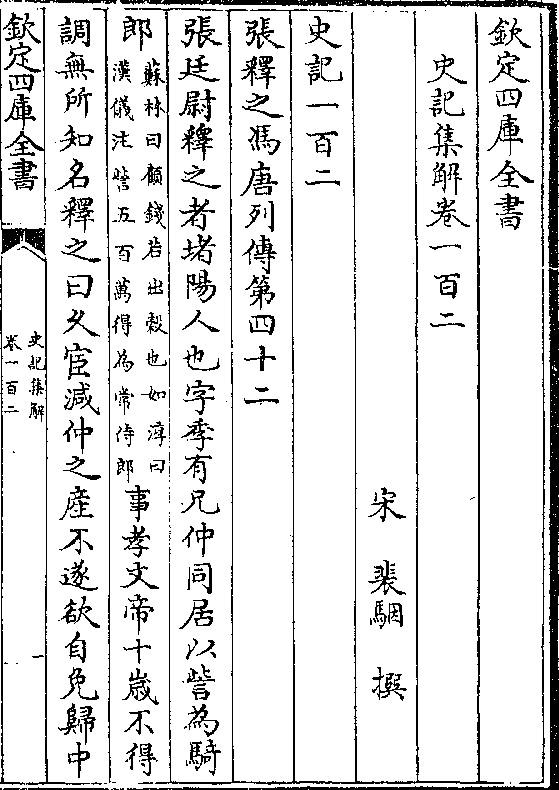 欽定四庫全書
史記集解卷一百二
宋 裴駰 撰
史記一百二
張釋之馮唐列傳第四十二
張廷尉釋之者堵陽人也字季有兄仲同居以訾為騎
郎蘇林曰顧錢若出穀也如淳曰漢儀注訾五百萬得為常侍郎事孝文帝十歳不得
調無所知名釋之曰久宦減仲之産不遂欲自免歸中
欽定四庫全書
史記集解
卷一百二
一